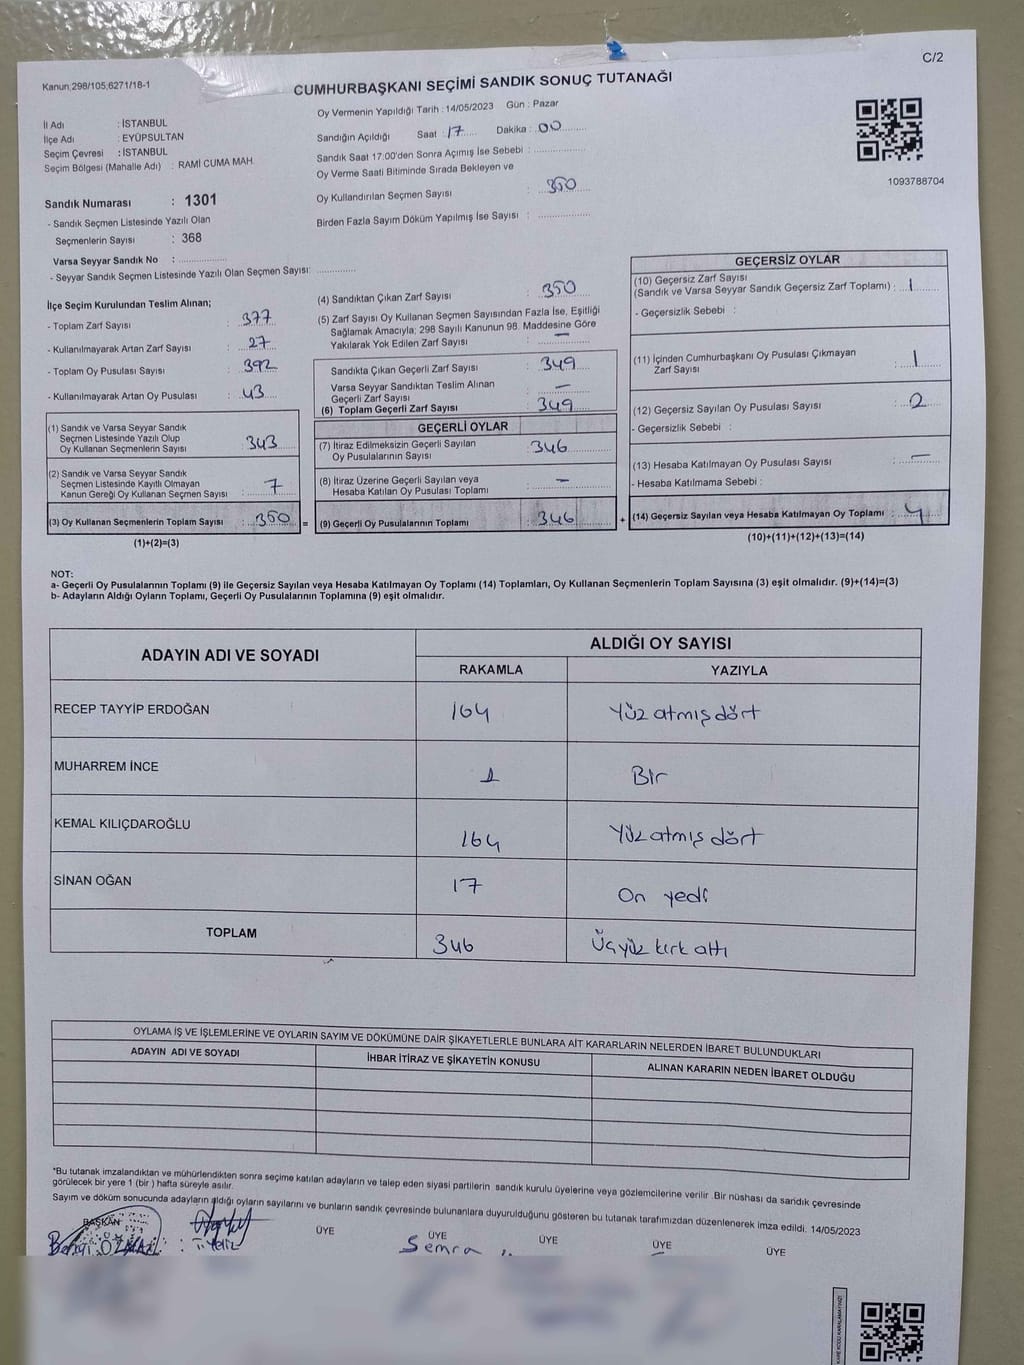 C/2
Kanun;298/105,6271/18-1
CUMHURBAŞKANI SEÇİMİ SANDIK SONUÇ TUTANAĞI
1093788704
İl Adı : İSTANBUL
İlçe Adı : EYÜPSULTAN
Seçim Çevresi : İSTANBUL
Seçim Bölgesi (Mahalle Adı) : RAMİ CUMA MAH.
Sandık Numarası : 1301
- Sandık Seçmen Listesinde Yazılı Olan
Seçmenlerin Sayısı : 368
Varsa Seyyar Sandık No :
- Seyyar Sandık Seçmen Listesinde Yazılı Olan Seçmen Sayısı:
Oy Vermenin Yapıldığı Tarih : 14/05/2023 Gün : Pazar
Sandığın Açıldığı Saat : 17 Dakika : 00
Sandık Saat 17:00'den Sonra Açımış İse Sebebi :
Oy Verme Saati Bitiminde Sırada Bekleyen ve
Oy Kullandırılan Seçmen Sayısı : 350
Birden Fazla Sayım Döküm Yapılmış İse Sayısı :
İlçe Seçim Kurulundan Teslim Alınan;
- Toplam Zarf Sayısı : 377
- Kullanılmayarak Artan Zarf Sayısı : 27
- Toplam Oy Pusulası Sayısı : 392
- Kullanılmayarak Artan Oy Pusulası : 43
(1) Sandık ve Varsa Seyyar Sandık
Seçmen Listesinde Yazılı Olup
Oy Kullanan Seçmenlerin Sayısı : 343
(2) Sandık ve Varsa Seyyar Sandık
Seçmen Listesinde Kayıtlı Olmayan
Kanun Gereği Oy Kullanan Seçmen Sayısı : 7
(3) Oy Kullanan Seçmenlerin Toplam Sayısı : 350 =
(1)+(2)=(3)
(4) Sandıktan Çıkan Zarf Sayısı : 350
(5) Zarf Sayısı Oy Kullanan Seçmen Sayısından Fazla İse, Eşitliği
Sağlamak Amacıyla; 298 Sayılı Kanunun 98. Maddesine Göre
Yakılarak Yok Edilen Zarf Sayısı : —
Sandıkta Çıkan Geçerli Zarf Sayısı : 349
Varsa Seyyar Sandıktan Teslim Alınan
Geçerli Zarf Sayısı : —
(6) Toplam Geçerli Zarf Sayısı : 349
GEÇERLİ OYLAR
(7) İtiraz Edilmeksizin Geçerli Sayılan
Oy Pusulalarının Sayısı : 346
(8) İtiraz Üzerine Geçerli Sayılan veya
Hesaba Katılan Oy Pusulası Toplamı : —
(9) Geçerli Oy Pusulalarının Toplamı : 346 +
GEÇERSİZ OYLAR
(10) Geçersiz Zarf Sayısı
(Sandık ve Varsa Seyyar Sandık Geçersiz Zarf Toplamı) : 1
- Geçersizlik Sebebi :
(11) İçinden Cumhurbaşkanı Oy Pusulası Çıkmayan
Zarf Sayısı : 1
(12) Geçersiz Sayılan Oy Pusulası Sayısı : 2
- Geçersizlik Sebebi :
(13) Hesaba Katılmayan Oy Pusulası Sayısı : —
- Hesaba Katılmama Sebebi :
(14) Geçersiz Sayılan veya Hesaba Katılmayan Oy Toplamı : 4
(10)+(11)+(12)+(13)=(14)
NOT:
a- Geçerli Oy Pusulalarının Toplamı (9) ile Geçersiz Sayılan veya Hesaba Katılmayan Oy Toplamı (14) Toplamları, Oy Kullanan Seçmenlerin Toplam Sayısına (3) eşit olmalıdır. (9)+(14)=(3)
b- Adayların Aldığı Oyların Toplamı, Geçerli Oy Pusulalarının Toplamına (9) eşit olmalıdır.
ADAYIN ADI VE SOYADI
ALDIĞI OY SAYISI
RAKAMLA YAZIYLA
RECEP TAYYİP ERDOĞAN 164 Yüz atmış dört
MUHARREM İNCE 1 Bir
KEMAL KILIÇDAROĞLU 164 Yüz atmış dört
SİNAN OĞAN 17 On yedi
TOPLAM 346 Üçyüz kırk altı
OYLAMA İŞ VE İŞLEMLERİNE VE OYLARIN SAYIM VE DÖKÜMÜNE DAİR ŞİKAYETLERLE BUNLARA AİT KARARLARIN NELERDEN İBARET BULUNDUKLARI
ADAYIN ADI VE SOYADI İHBAR İTİRAZ VE ŞİKAYETİN KONUSU ALINAN KARARIN NEDEN İBARET OLDUĞU
*Bu tutanak imzalandıktan ve mühürlendikten sonra seçime katılan adayların ve talep eden siyasi partilerin sandık kurulu üyelerine veya gözlemcilerine verilir .Bir nüshası da sandık çevresinde
görülecek bir yere 1 (bir ) hafta süreyle asılır.
Sayım ve döküm sonucunda adayların aldığı oyların sayılarını ve bunların sandık çevresinde bulunanlara duyurulduğunu gösteren bu tutanak tarafımızdan düzenlenerek imza edildi. 14/05/2023
BAŞKAN ÜYE ÜYE ÜYE ÜYE ÜYE
Semra